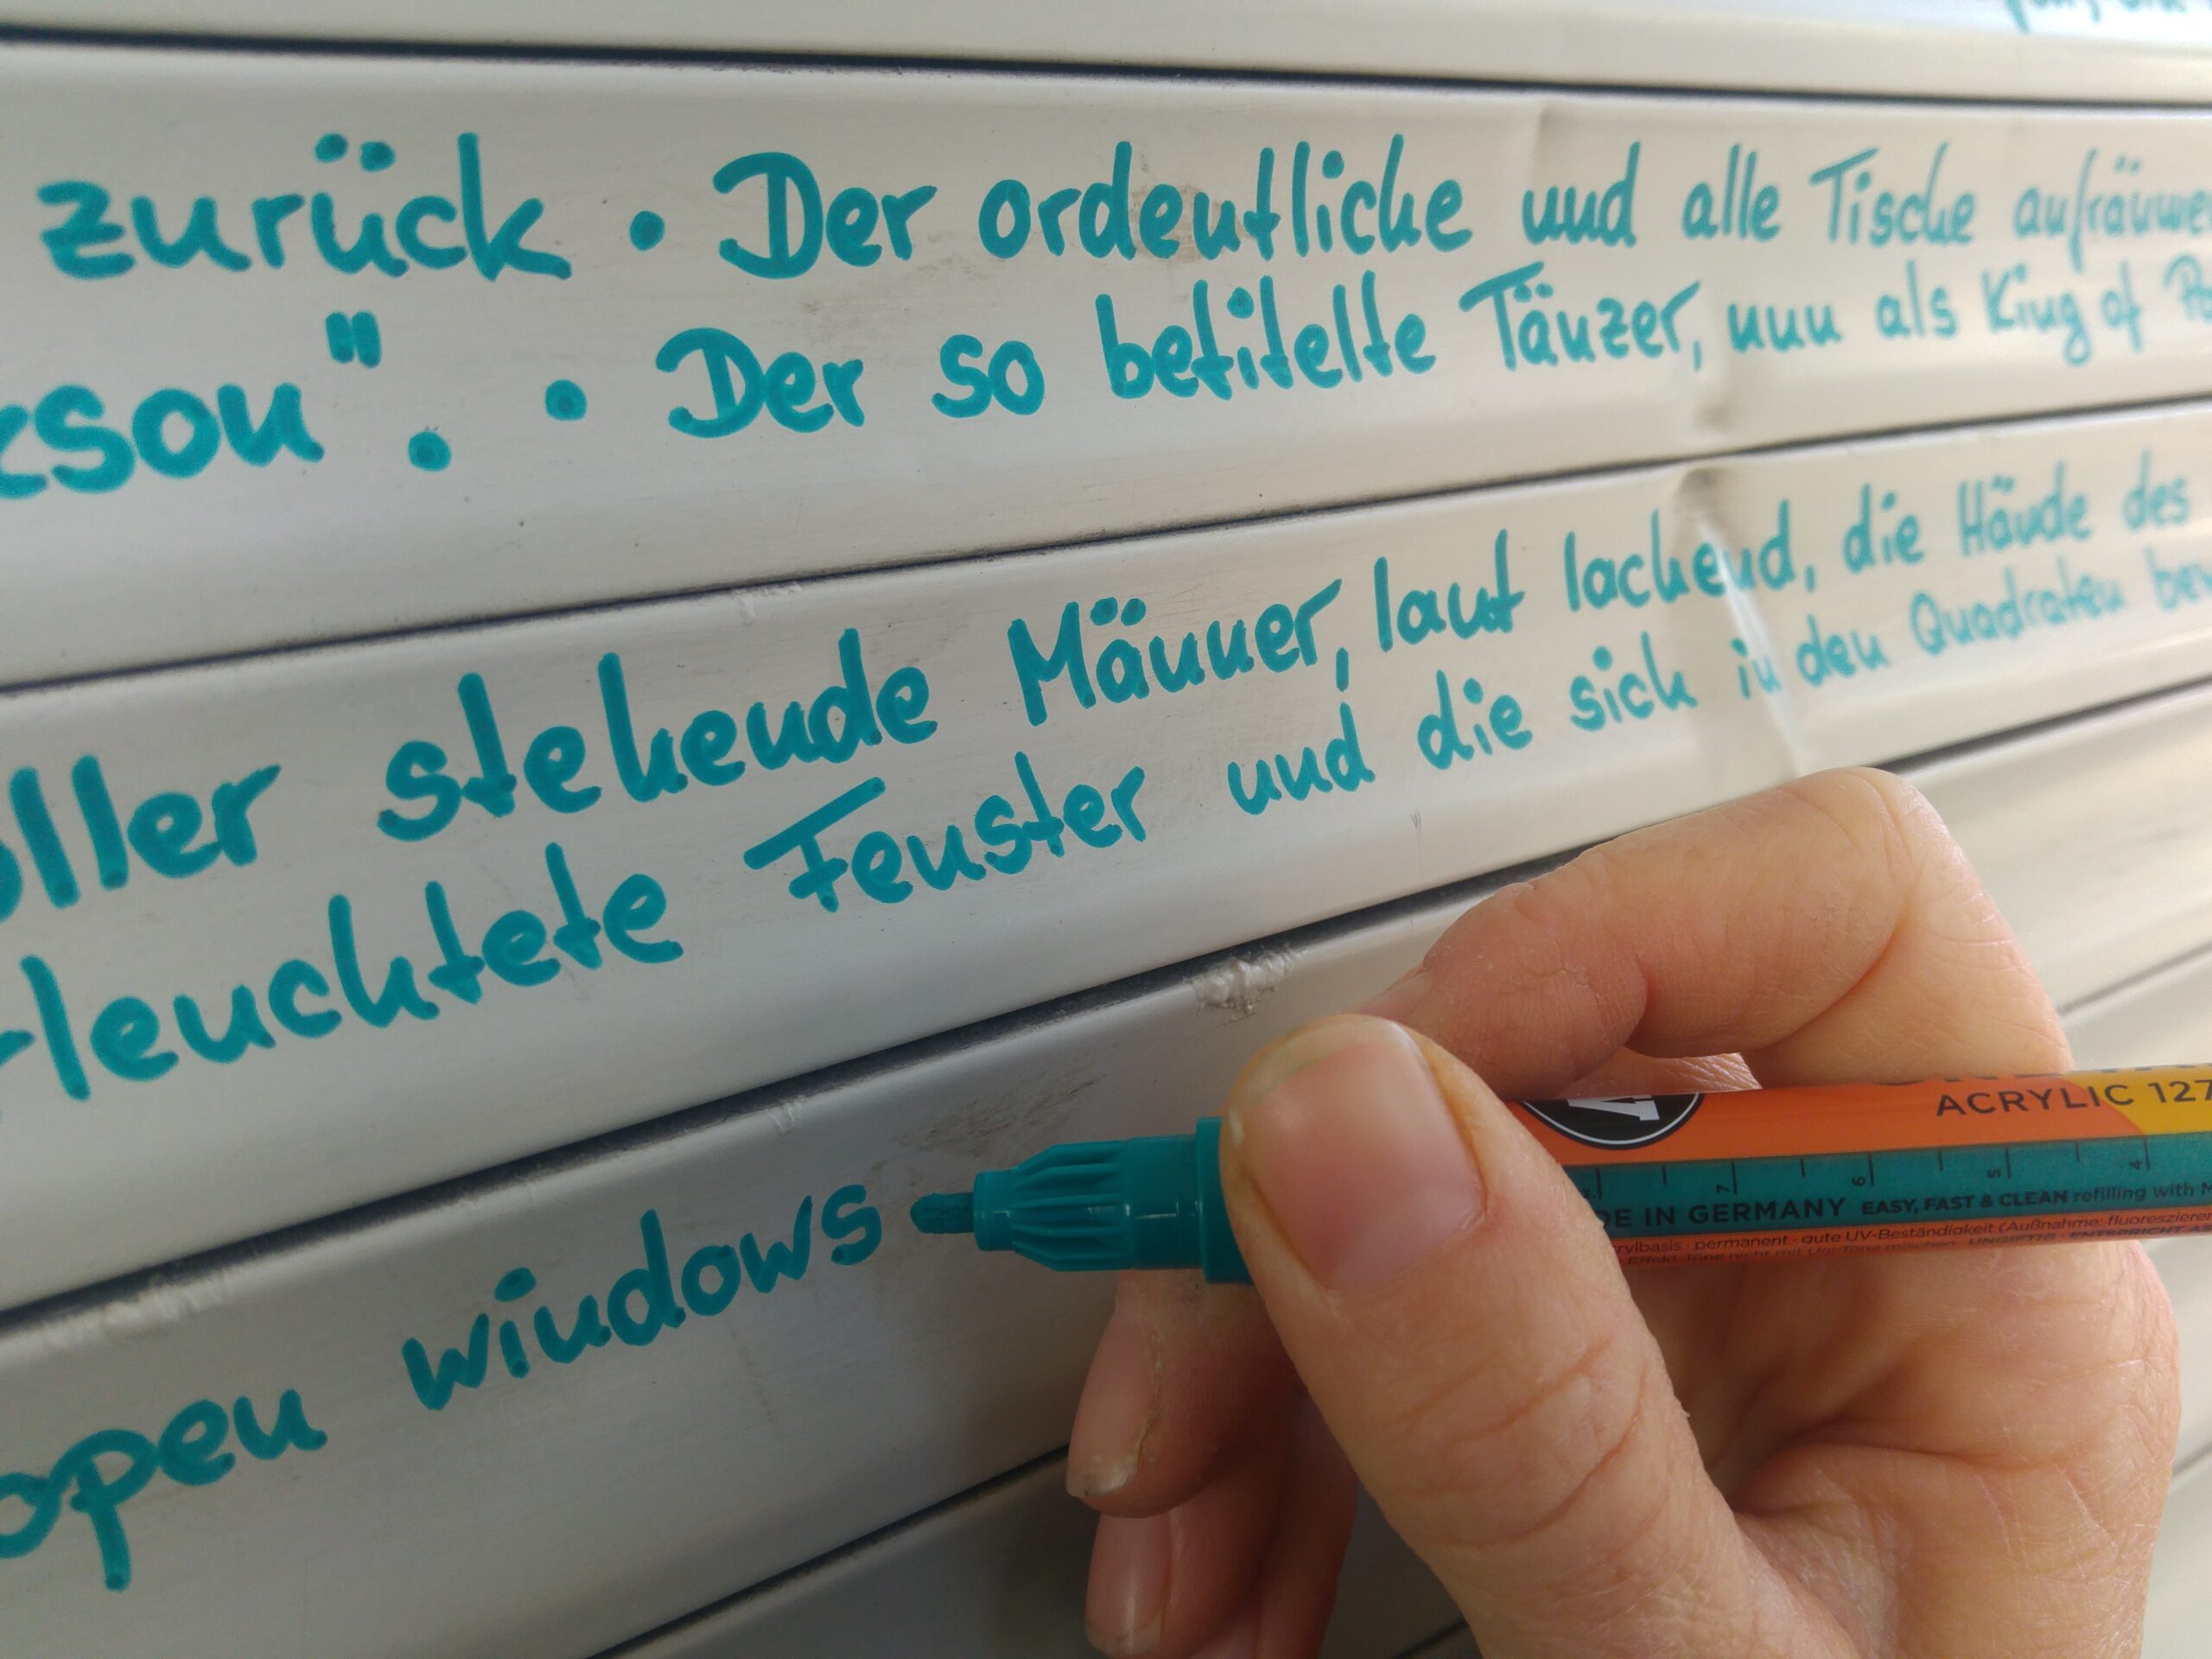 zurück · Der ordentliche und alle Tische
kson". · Der so betitelte Tänzer, nun als King of
ller stehende Männer, laut lachend, die Hände des
leuchtete Fenster und die sich in den Quadraten
open windows
ACRYLIC 127
DE IN GERMANY EASY, FAST & CLEAN refilling with
permanent · gute UV-Beständigkeit (Außnahme: